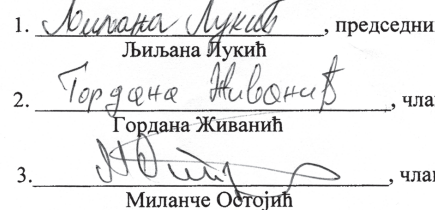 1. Љиљана Лукић, председни
Љиљана Лукић
2. Гордана Живанић, чла
Гордана Живанић
3. , члан
Миланче Остојић